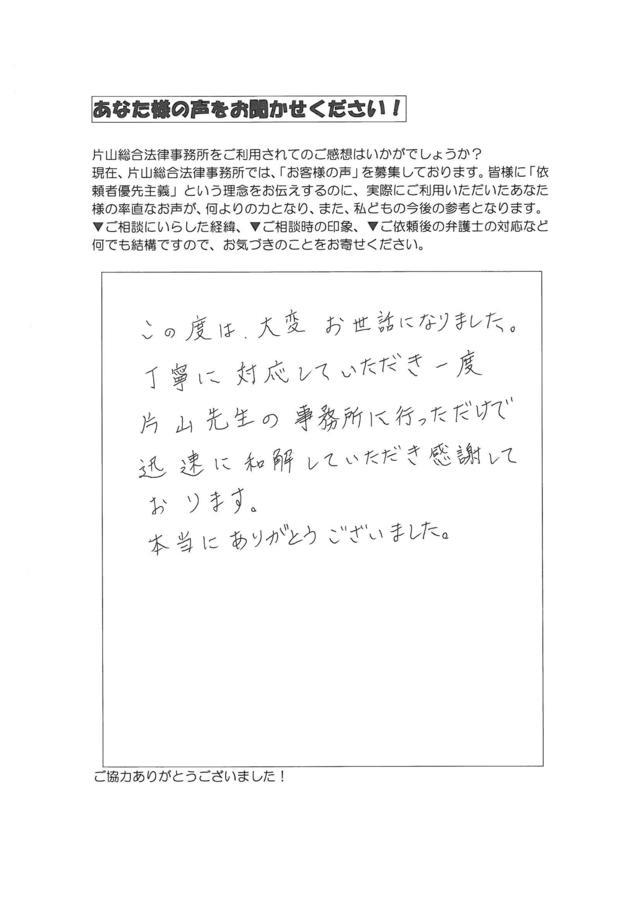 あなた様の声をお聞かせください！
片山総合法律事務所をご利用されてのご感想はいかがでしょうか？
現在、片山総合法律事務所では、「お客様の声」を募集しております。皆様に「依
頼者優先主義」という理念をお伝えするのに、実際にご利用いただいたあなた
様の率直なお声が、何よりの力となり、また、私どもの今後の参考となります。
▼ご相談にいらした経緯、▼ご相談時の印象、▼ご依頼後の弁護士の対応など
何でも結構ですので、お気づきのことをお寄せください。
この度は、大変 お世話になりました。
丁寧に 対応していただき 一度
片山先生の 事務所に行っただけで
迅速に 和解していただき 感謝して
おります。
本当に ありがとうございました。
ご協力ありがとうございました！